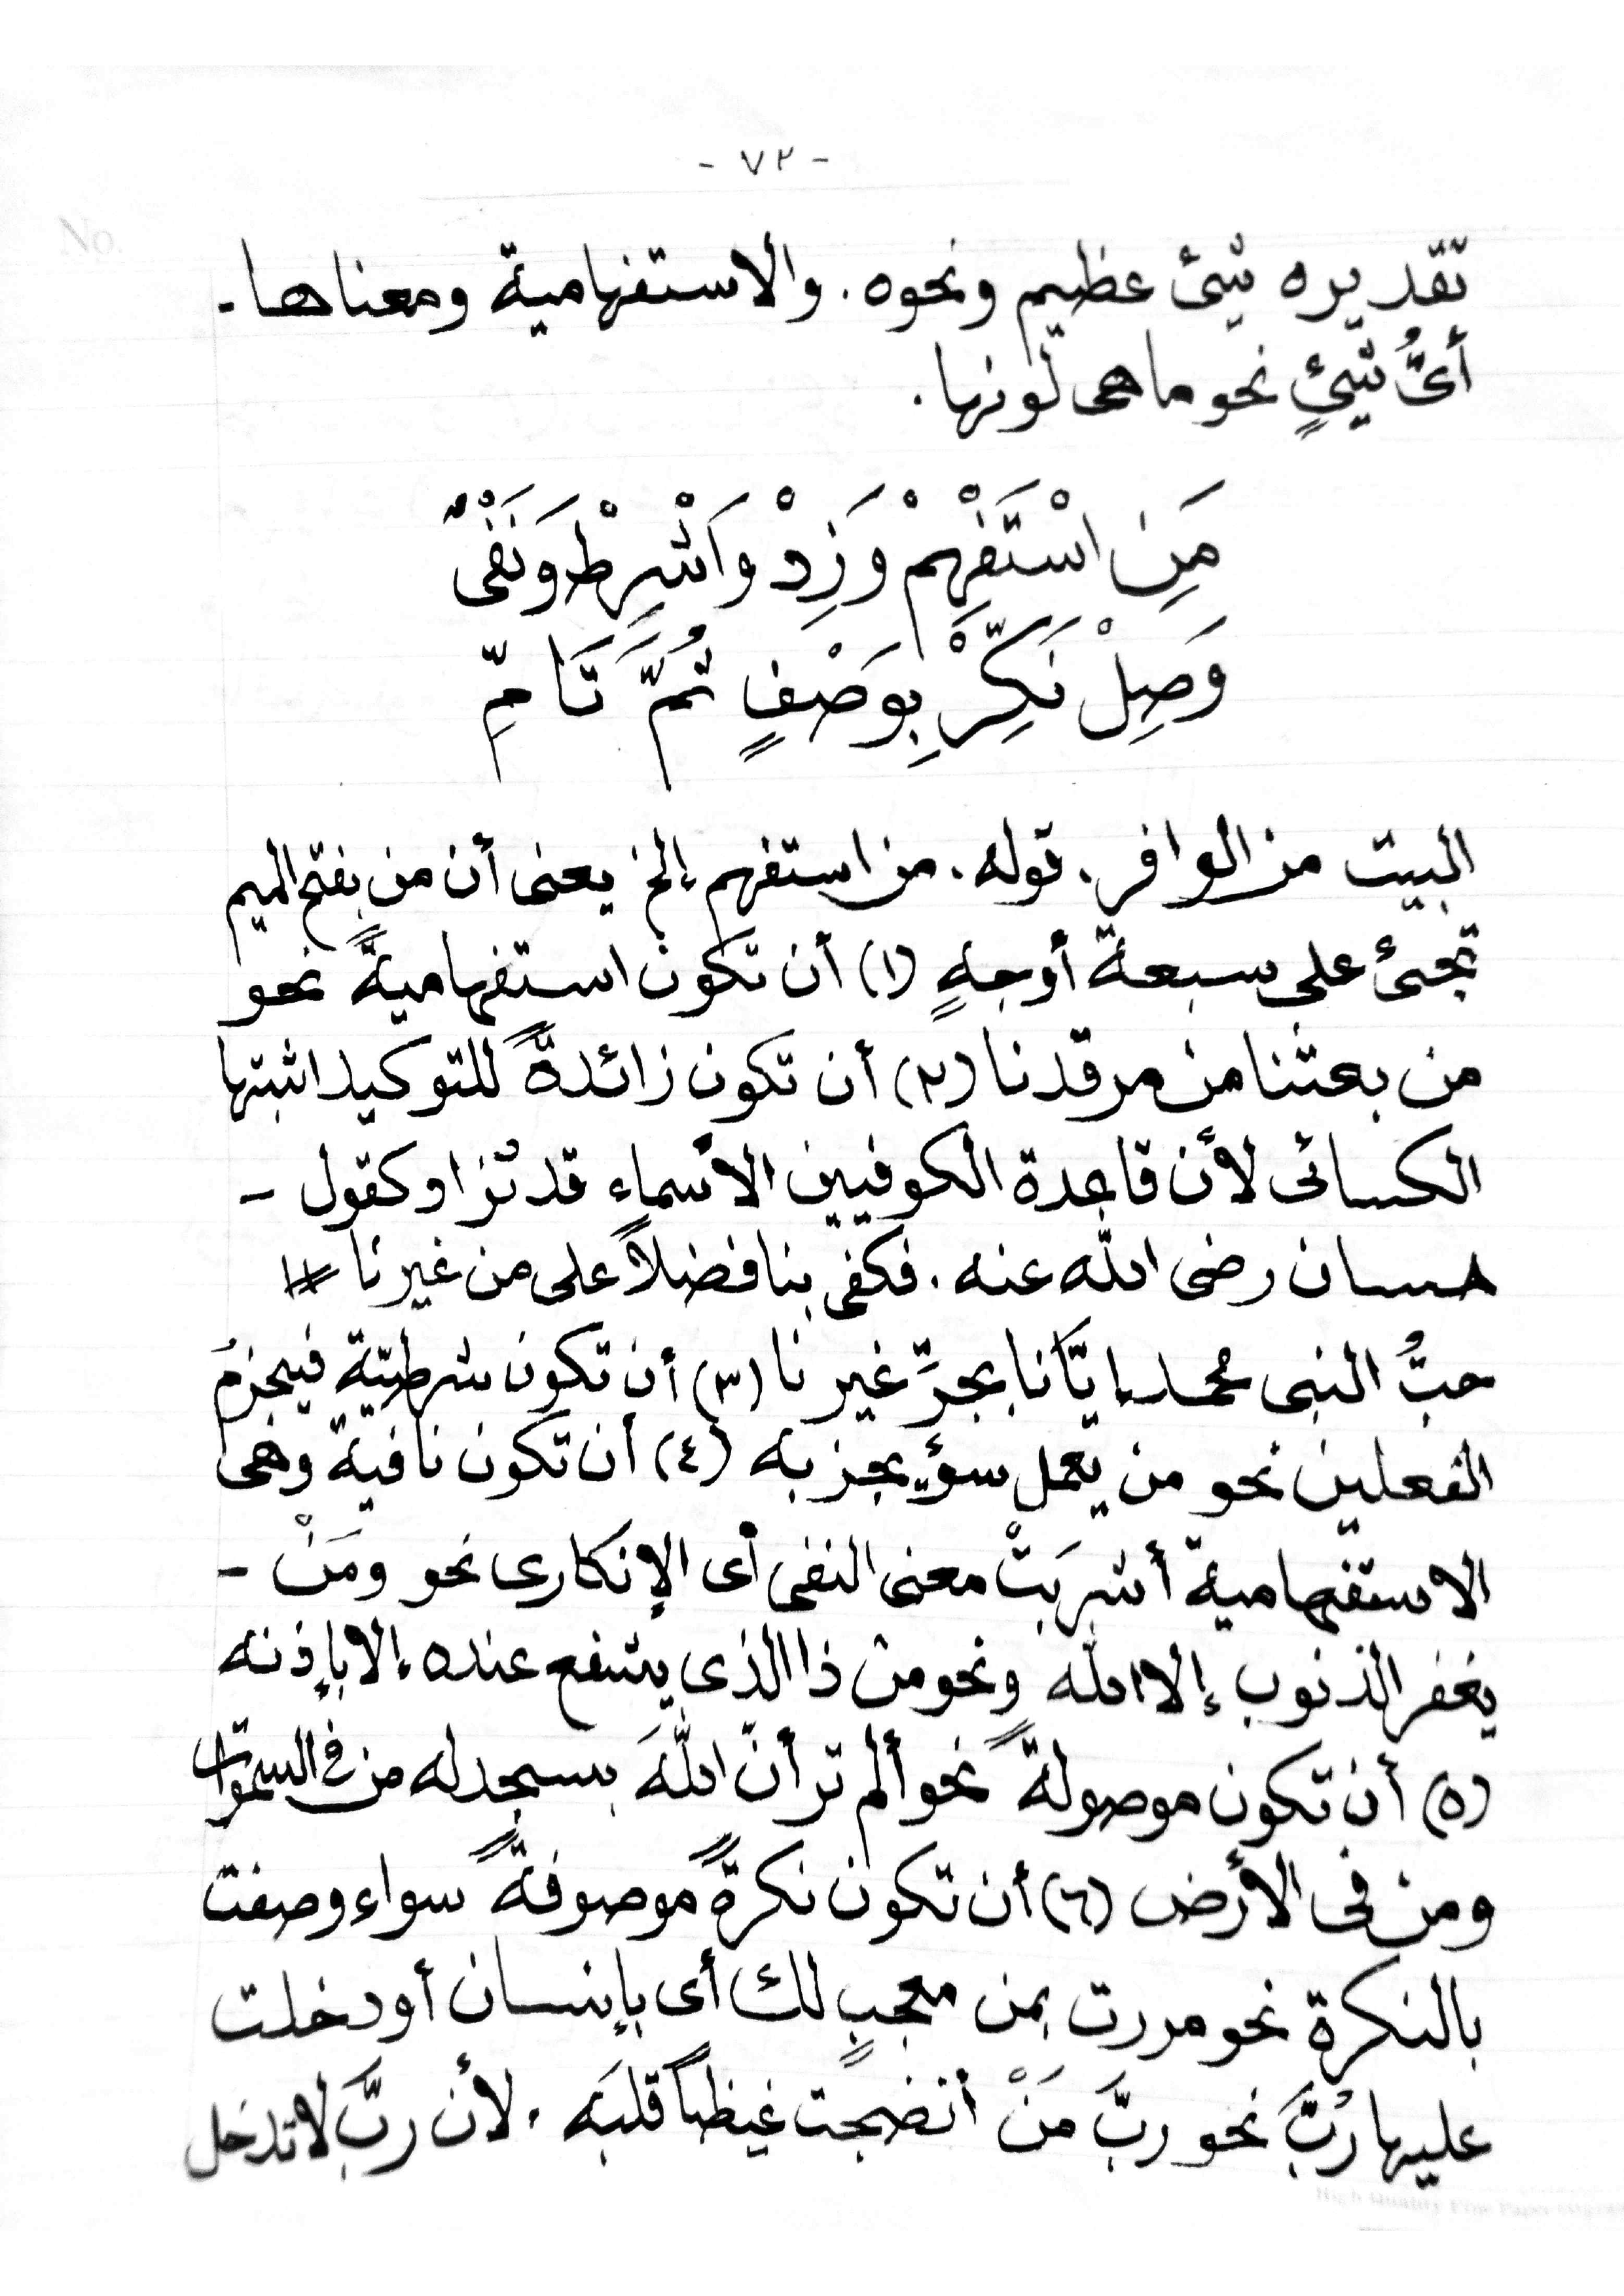 - ٧٢ -
No.
تقديره شئ عظيم ونحوه. والاستفهامية ومعناها -
أىُّ شيئٍ نحو ما هى لونها.
مَنِ اسْتَفْهِمْ وَزِدْ وَاشْرِطْ وَنَفْىٌ
وَصِلْ نَكِّرْ بِوَصْفٍ ثُمَّ تَامِّ
البيت من الوافر. قوله. من استفهم إلخ يعنى أن من بفتح الميم
تجئ على سبعة أوجهٍ (١) أن تكون استفهاميةً نحو
من بعثنا من مرقدنا (٢) أن تكون زائدةً للتوكيد اثبتها
الكسائى لأن قاعدة الكوفيين الأسماء قد تُزاد كقول -
حسان رضى الله عنه. فكفى بنا فضلاً على من غيرنا //
حبُّ النبى محمد إيَّانا بجرِّ غيرنا (٣) أن تكون شرطيّةً فيجزمُ
الفعلين نحو من يعمل سؤ يجز به (٤) أن تكون نافية وهى
الاستفهامية أشرِبَتْ معنى النفى أى الإنكارى نحو ومَنْ -
يغفر الذنوب إلا الله ونحو من ذا الذى يشفع عنده إلا بإذنه
(٥) أن تكون موصولةً نحو ألم تر أن اللهَ يسجد له من فى السموات
ومن فى الأرض (٦) أن تكون نكرةً موصوفةً سواء وصفت
بالنكرة نحو مررت بمن معجبٍ لك أى بإنسان أو دخلت
عليها رُبَّ نحو ربَّ مَنْ أنضجت غيظاً قلبَه. لأن ربَّ لا تدخل